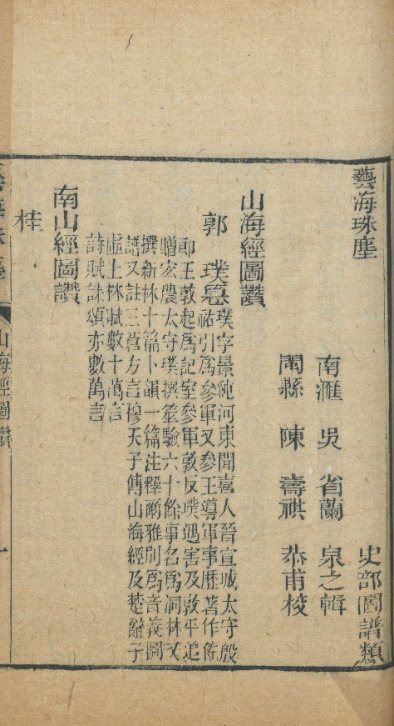 藝海珠塵 史部圖譜類
南滙 吳省蘭 泉之輯
閩縣 陳壽祺 恭甫校
山海經圖讚
郭璞 璞字景純河東聞喜人晉宣城太守殷
祐引爲參軍又參王導軍事歷著作佐
郎王敦起爲記室參軍敦反璞遇害及敦平追
贈宏農太守璞撰筮驗六十餘事名爲洞林又
撰新林十篇卜韻一篇注釋爾雅別爲音義圖
譜又註三蒼方言穆天子傳山海經及楚辭子
虛上林賦數十萬言
詩賦誄頌亦數萬言
南山經圖讚
桂
山海經圖讚
一